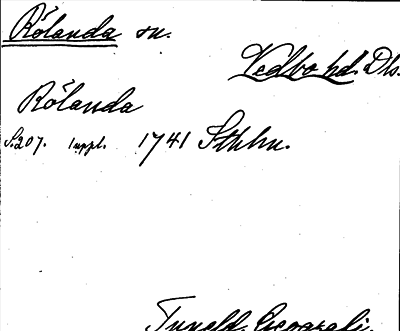 Rölanda sn.
Vedbo hd. Dls.
Rölanda
S. 207. Suppl. 1741 Sthlm.
Tuneld, Geografi.